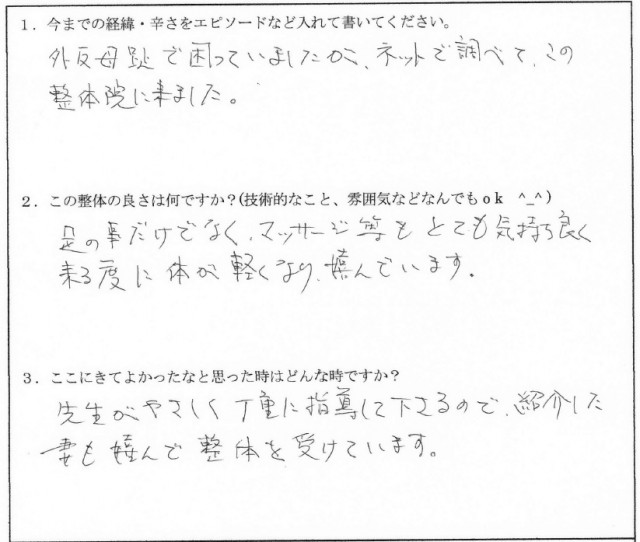 1．今までの経緯・辛さをエピソードなど入れて書いてください。
外反母趾で困っていましたが、ネットで調べて、この
整体院に来ました。
2．この整体の良さは何ですか？(技術的なこと、雰囲気などなんでもｏｋ　^_^）
足の事だけでなく、マッサージ等もとても気持ち良く
来る度に体が軽くなり、嬉んでいます。
3．ここにきてよかったなと思った時はどんな時ですか？
先生がやさしく丁重に指導して下さるので、紹介した
妻も嬉んで整体を受けています。